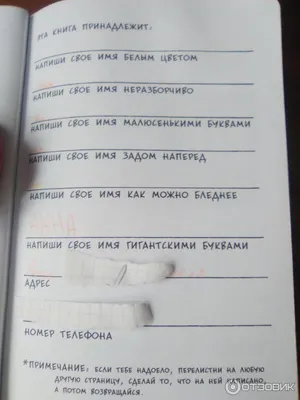 ЭТА КНИГА ПРИНАДЛЕЖИТ:
НАПИШИ СВОЕ ИМЯ БЕЛЫМ ЦВЕТОМ
НАПИШИ СВОЕ ИМЯ НЕРАЗБОРЧИВО
НАПИШИ СВОЕ ИМЯ МАЛЮСЕНЬКИМИ БУКВАМИ
НАПИШИ СВОЕ ИМЯ ЗАДОМ НАПЕРЕД
НАПИШИ СВОЕ ИМЯ КАК МОЖНО БЛЕДНЕЕ
НАПИШИ СВОЕ ИМЯ ГИГАНТСКИМИ БУКВАМИ
АДРЕС
НОМЕР ТЕЛЕФОНА
*ПРИМЕЧАНИЕ: ЕСЛИ ТЕБЕ НАДОЕЛО, ПЕРЕЛИСТНИ НА ЛЮБУЮ
ДРУГУЮ СТРАНИЦУ, СДЕЛАЙ ТО, ЧТО НА НЕЙ НАПИСАНО,
А ПОТОМ ВОЗВРАЩАЙСЯ.
ОТЗОВИК